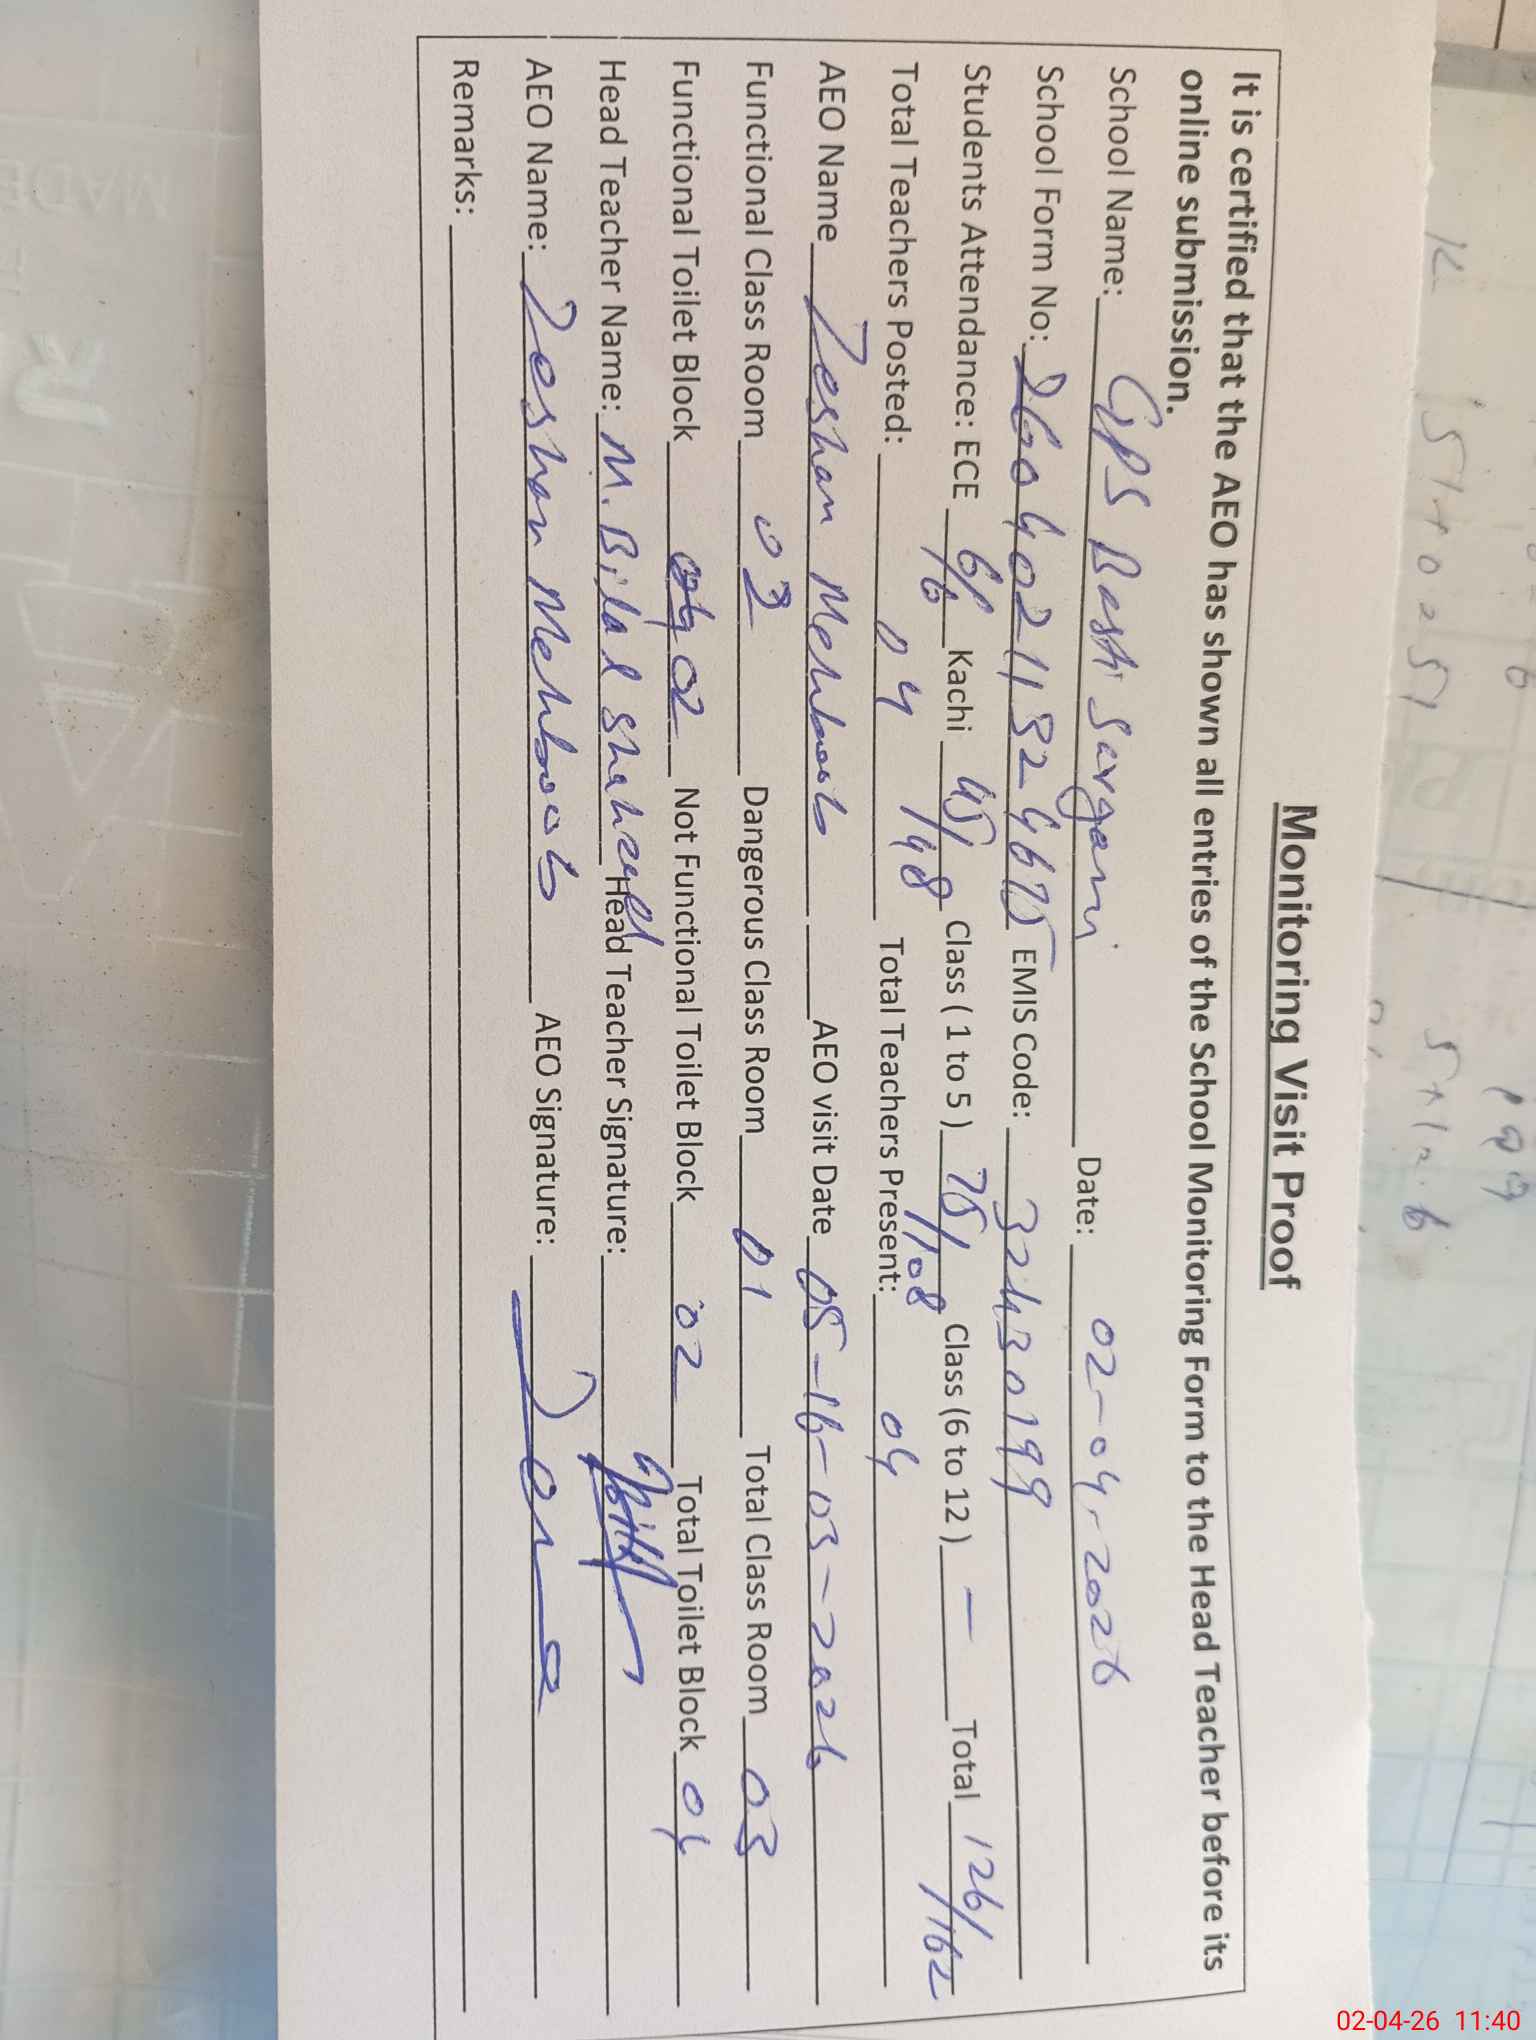 Monitoring Visit Proof
It is certified that the AEO has shown all entries of the School Monitoring Form to the Head Teacher before its
online submission.
School Name: GPS Basti Sargani Date: 02-04-2026
School Form No: 26040211324675 EMIS Code: 32430199
Students Attendance: ECE 6/6 Kachi 45/48 Class ( 1 to 5 ) 75/108 Class (6 to 12 ) - Total 126/162
Total Teachers Posted: 04 Total Teachers Present: 04
AEO Name Zeshan Mehboob AEO visit Date 05-16-03-2026
Functional Class Room 02 Dangerous Class Room 01 Total Class Room 03
Functional Toilet Block 02 Not Functional Toilet Block 02 Total Toilet Block 04
Head Teacher Name: M. Bilal Shahzad Head Teacher Signature:
AEO Name: Zeshan Mehboob AEO Signature:
Remarks:
MADE
02-04-26 11:40